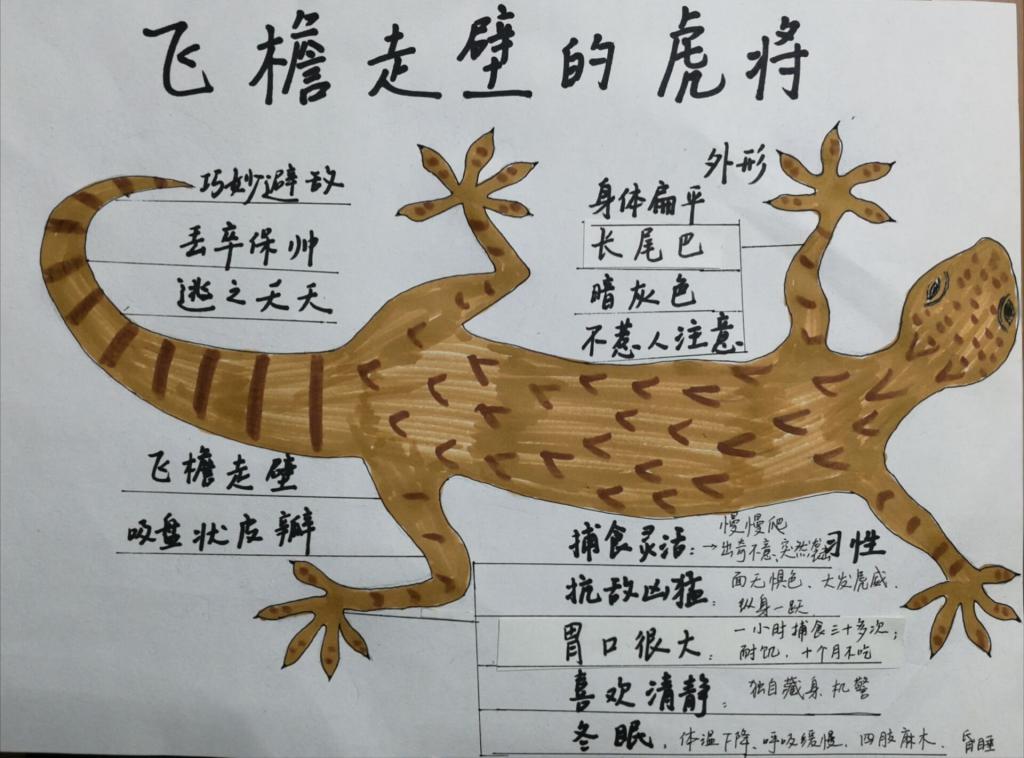 飞檐走壁的虎将
巧妙避敌
丢卒保帅
逃之夭夭
外形
身体扁平
长尾巴
暗灰色
不惹人注意
飞檐走壁
吸盘状皮瓣
习性
捕食灵活：→慢慢爬
出奇不意、突然袭击
抗敌凶猛：面无惧色、大发虎威.
纵身一跃
胃口很大：一小时捕食三十多次；
耐饥，十个月不吃
喜欢清静：独自藏身机警
冬眠，体温下降、呼吸缓慢、四肢麻木、昏睡